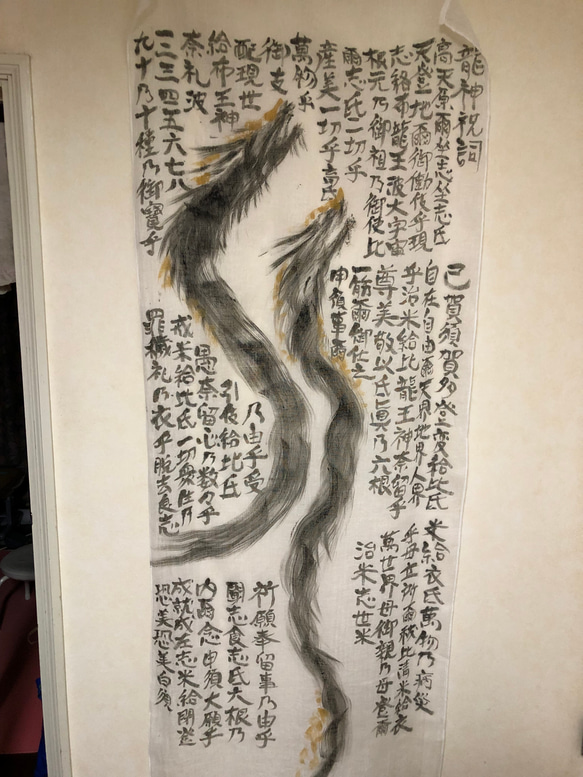 龍神祝詞
高天原爾坐志坐志氐
天登地爾御働伎乎現
志給布龍王波大宇宙
根元乃御祖乃御使比
爾志氐一切乎
産美一切乎育氐
萬物乎
御支
配現世
給布王神
奈礼波
一二三四五六七八
九十乃十種乃御寶乎
己賀須賀多登変給比氐
自在自由爾天界地界人界
乎治米給比龍王神奈留乎
尊美敬以氐眞乃六根
一筋爾御仕
申須事
乃由乎受
引伎給比氐
愚奈留心乃数々乎
戒米給比氐一切衆生乃
罪穢礼乃衣乎脱去良志
米給衣氐萬物乃病災
乎母立所爾祓比清米給衣
萬世界母御親乃母登爾
治米志世米
祈願奉留事乃由乎
聞志食志氐六根乃
内爾念申須大願乎
成就成左志米給閉登
恐美恐美白須